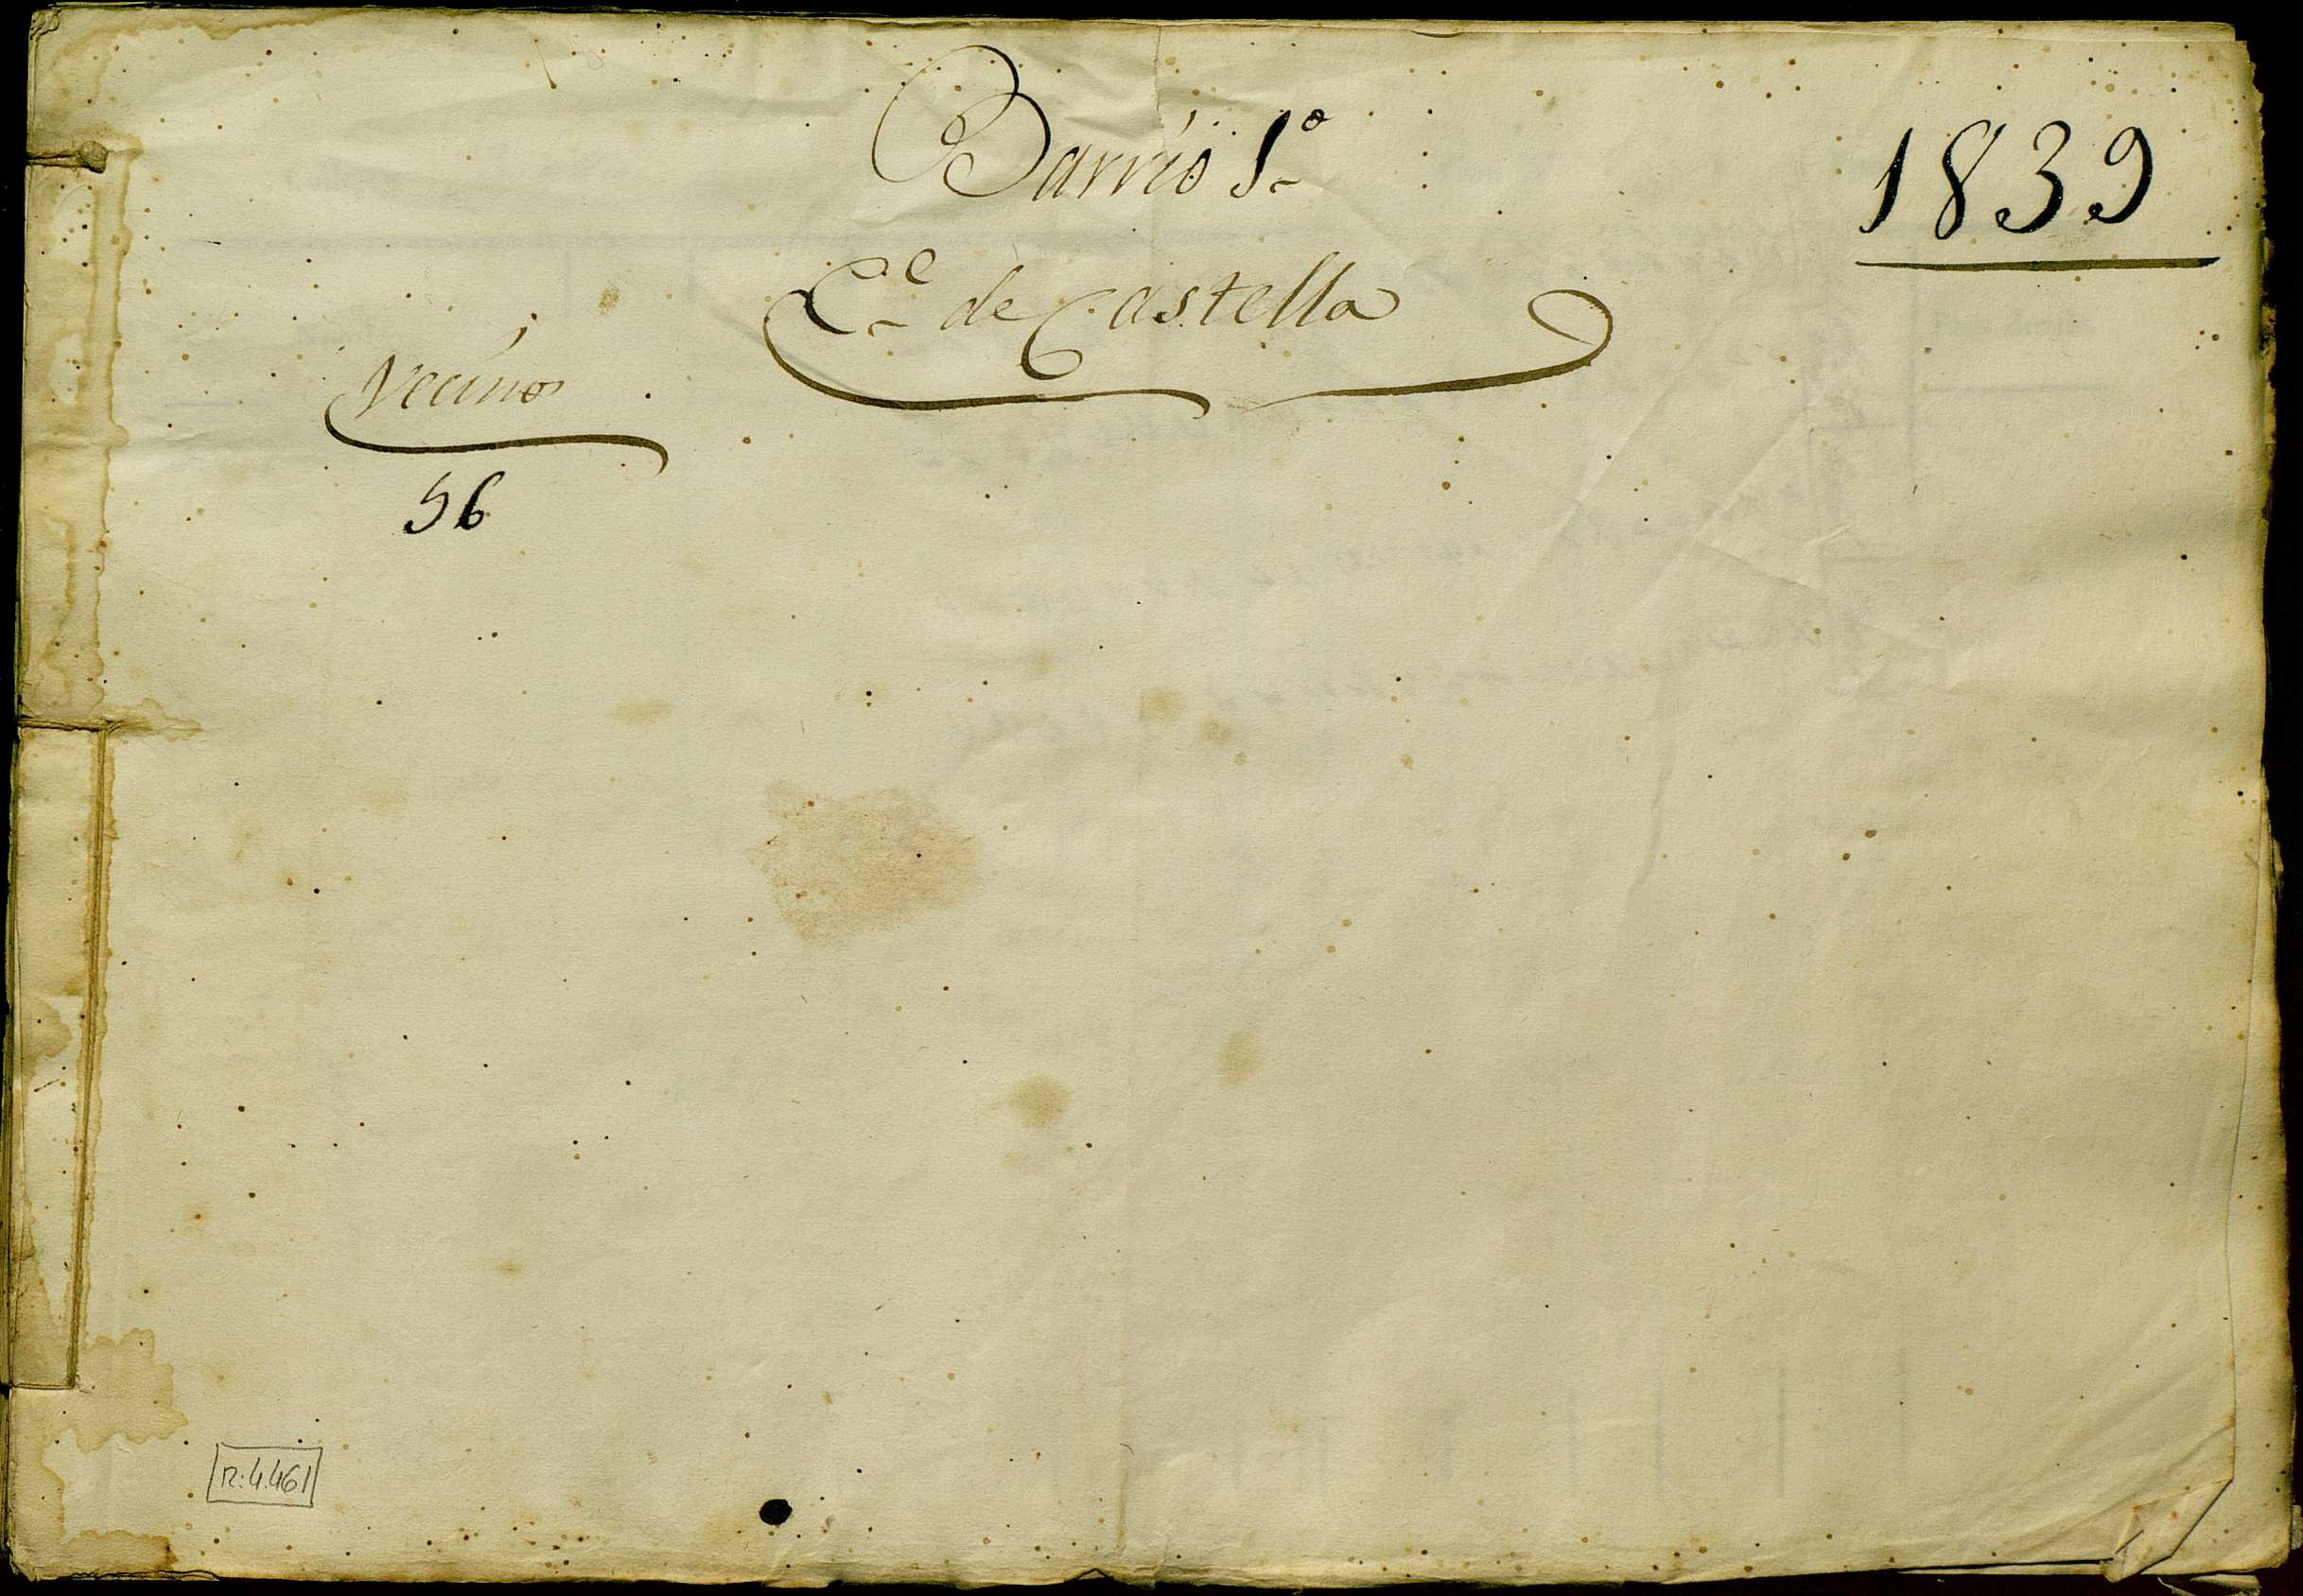 Barrio 1º
1839
Cᵉ de Castella
Vecinos
56
R: 4.461